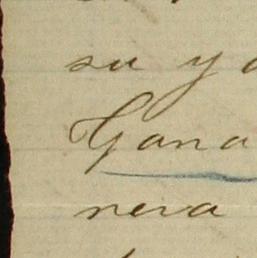 su y a
Gana
nera